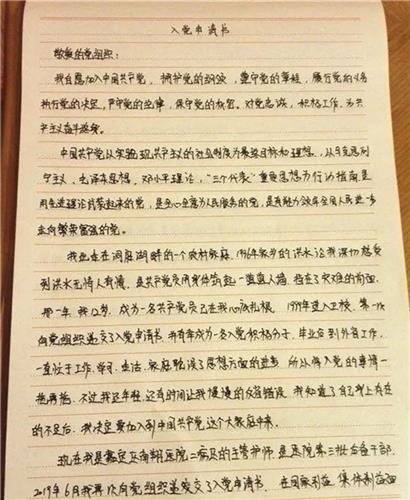 入党申请书
敬爱的党组织：
我自愿加入中国共产党，拥护党的纲领，遵守党的章程，履行党的义务
执行党的决定，严守党的纪律，保守党的秘密。对党忠诚，积极工作，为共
产主义奋斗终身。
中国共产党以实现共产主义的社会制度为最终目标和理想，以马克思列
宁主义、毛泽东思想、邓小平理论，“三个代表”重要思想为行动指南是
用先进理论武装起来的党，是全心全意为人民服务的党，是有能力领导全国人民进一步
走向繁荣富强的党。
我出生在洞庭湖畔的一个农村家庭，1996年家乡的洪水让我深切感受
到洪水无情人有情，是共产党员用身体筑起一道道人墙，挡在了灾难的前面，
那一年我12岁，成为一名共产党员已在我心底扎根。1999年进入卫校，第一次
向党组织递交了入党申请书，并有幸成为一名入党积极分子，毕业后到外省工作，
一直忙于工作、学习、生活、家庭耽误了思想方面的进步，所以将入党的事情一
拖再拖，不过我还年轻，还有时间让我慢慢的反省错误，我知道了自己身上存在
的不足后，我决定要加入到中国共产党这个大家庭中来。
现在我是嘉定区南翔医院二病区的主管护师，是医院第三批后备干部，
2019年6月我再次向党组织递交了入党申请书，在国家利益、集体利益面